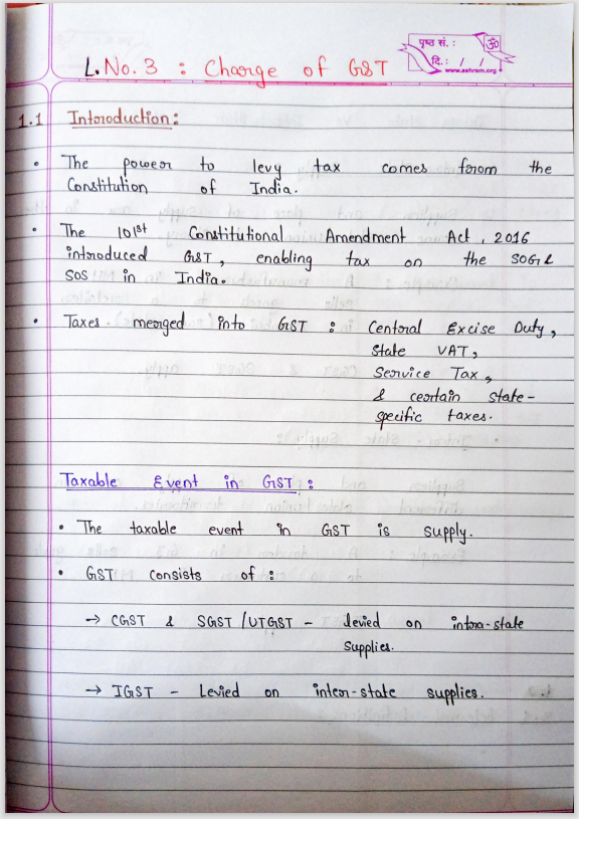 पृष्ठ सं. :
ॐ
दि.: / /
www.ashram.org
L.No. 3 : Charge of GST
1.1 Introduction:
• The power to levy tax comes from the
Constitution of India.
• The 101st Constitutional Amendment Act, 2016
introduced GST, enabling tax on the SOG &
SOS in India.
• Taxes merged into GST : Central Excise Duty,
State VAT,
Service Tax,
& certain state-
specific taxes.
Taxable Event in GST :
• The taxable event in GST is supply.
• GST consists of :
→ CGST & SGST/UTGST - levied on intra-state
Supplies.
→ IGST - Levied on inter-state supplies.